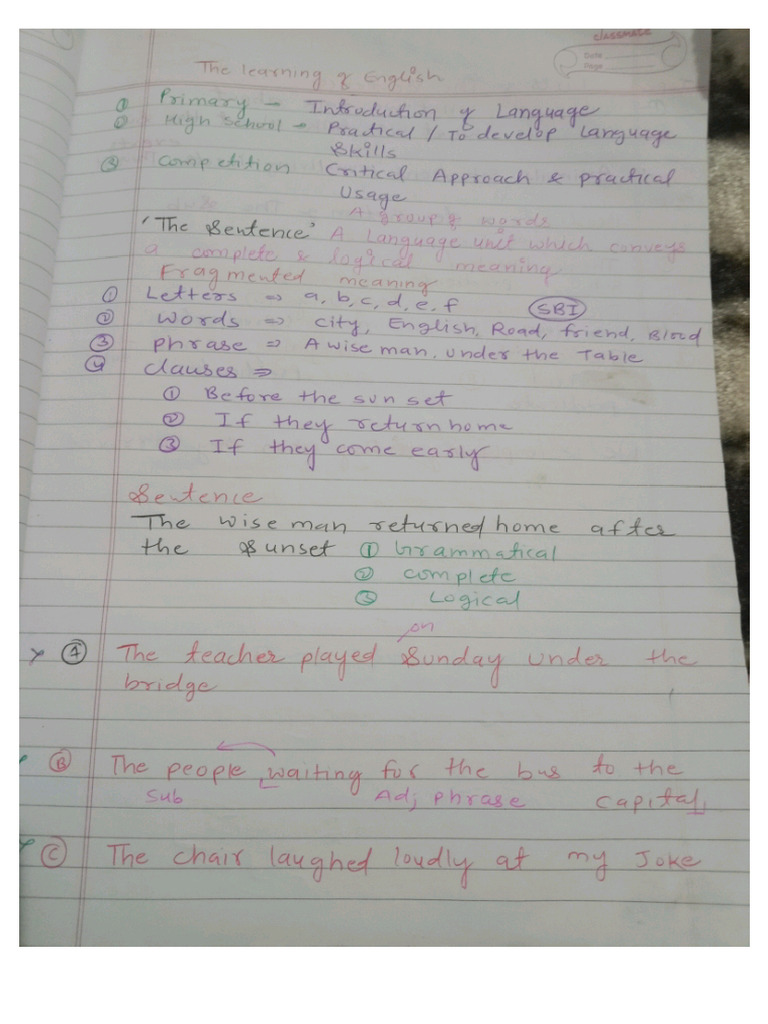 classmate
Date
Page
The learning of English
① Primary - Introduction of Language
② High school - Practical / To develop Language
Skills
③ Competition Critical Approach & practical
Usage
A group of words
'The Sentence' A Language unit which conveys
a complete & logical meaning
Fragmented meaning
① Letters ⇒ a, b, c, d, e, f SBI
② Words ⇒ city, English, Road, friend, Blood
③ phrase ⇒ A wise man, under the Table
④ clauses ⇒
① Before the sun set
② If they return home
③ If they come early
Sentence
The wise man returned home after
the Sunset ① Grammatical
② complete
③ Logical
on
A The teacher played Sunday under the
bridge
B The people, waiting for the bus to the
Sub Adj phrase capital,
C The chair laughed loudly at my Joke